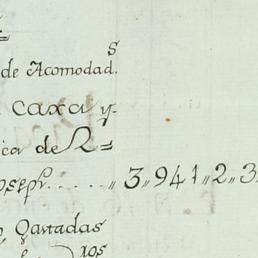 de Acomodad.s
caxa y
ica de R=
oseph.....,, 3,,941,,2,,3
Gastadas